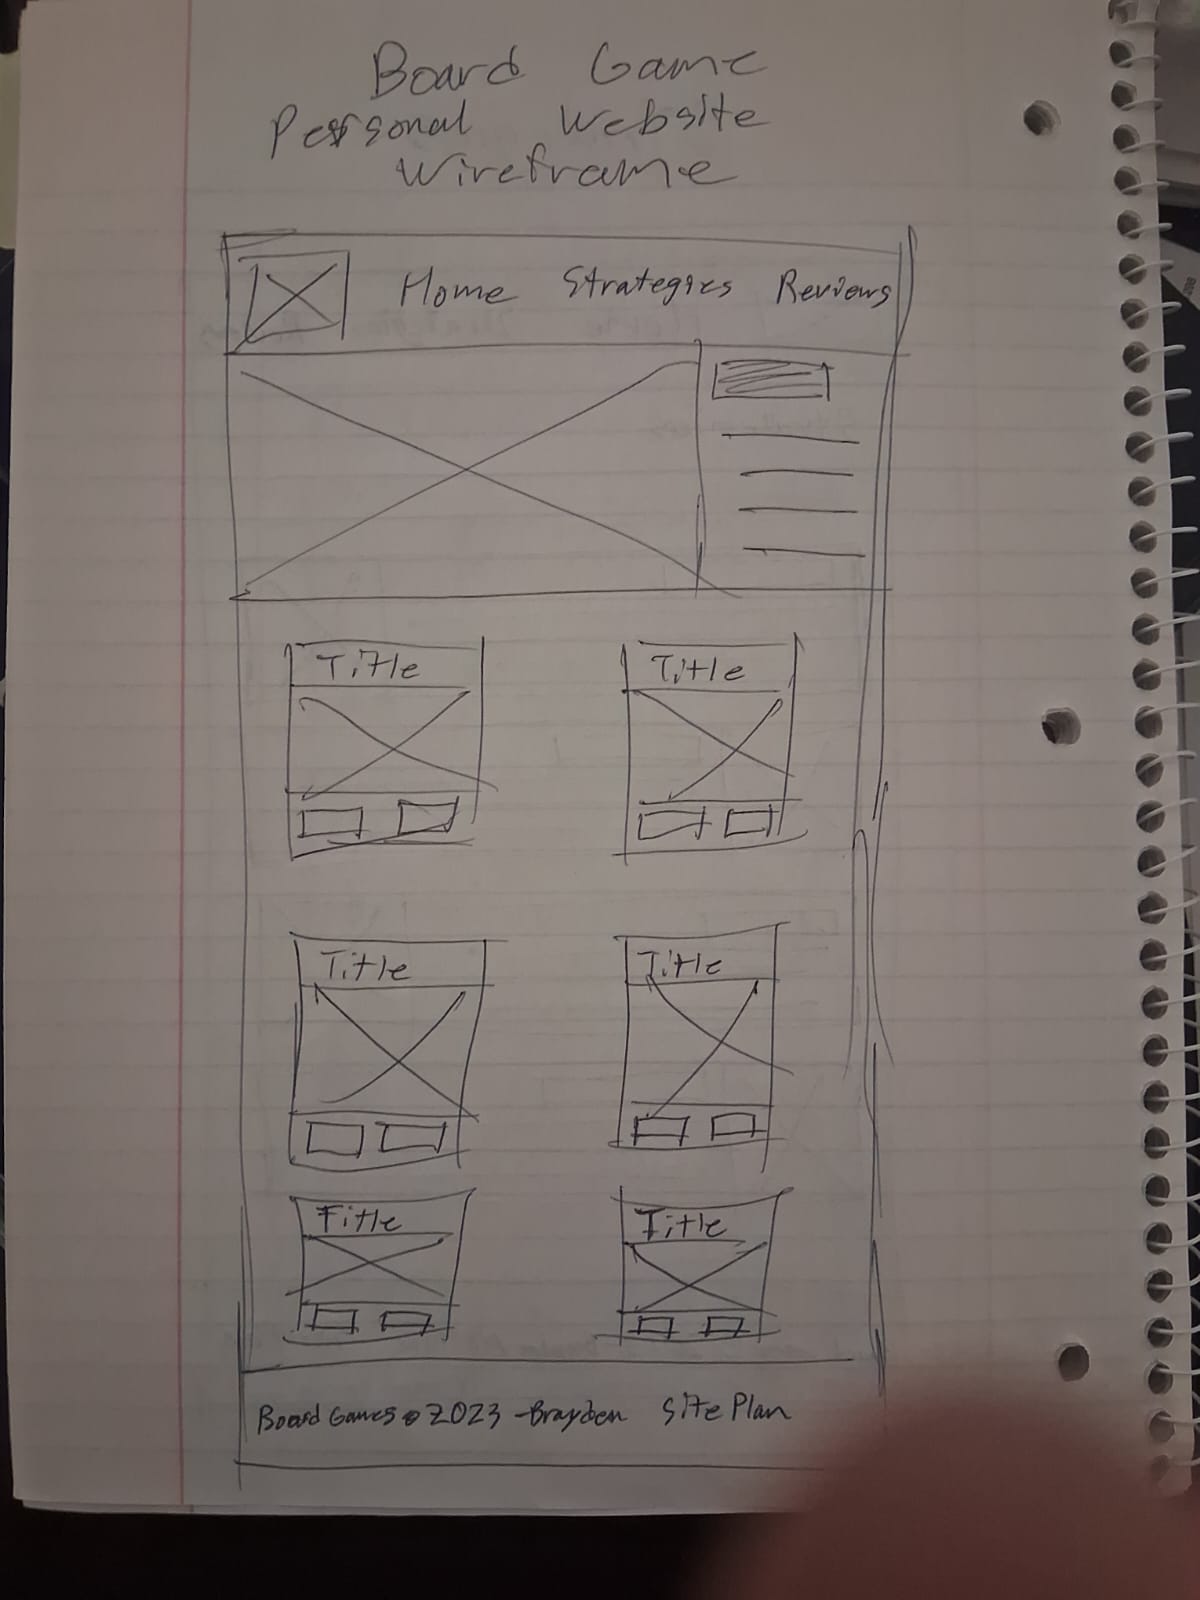 Board Game
Personal Website
Wireframe
Home Strategies Reviews
Title Title
Title Title
Title Title
Board Games © 2023 - Brayden Site Plan